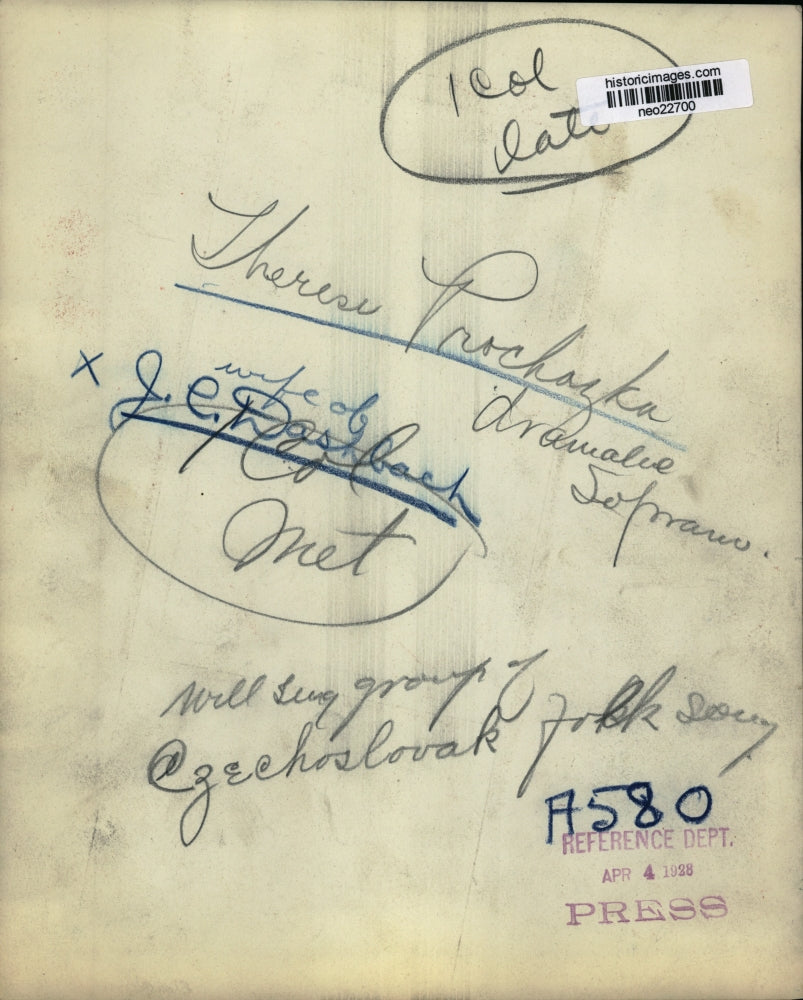 1 Col
Late
historicimages.com
neo22700
Therese Prochazka
dramatic
Soprano.
wife of
X J. C. Dashbach
1 Col
Met
Will sing group of
Czechoslovak folk song
A580
REFERENCE DEPT.
APR 4 1928
PRESS